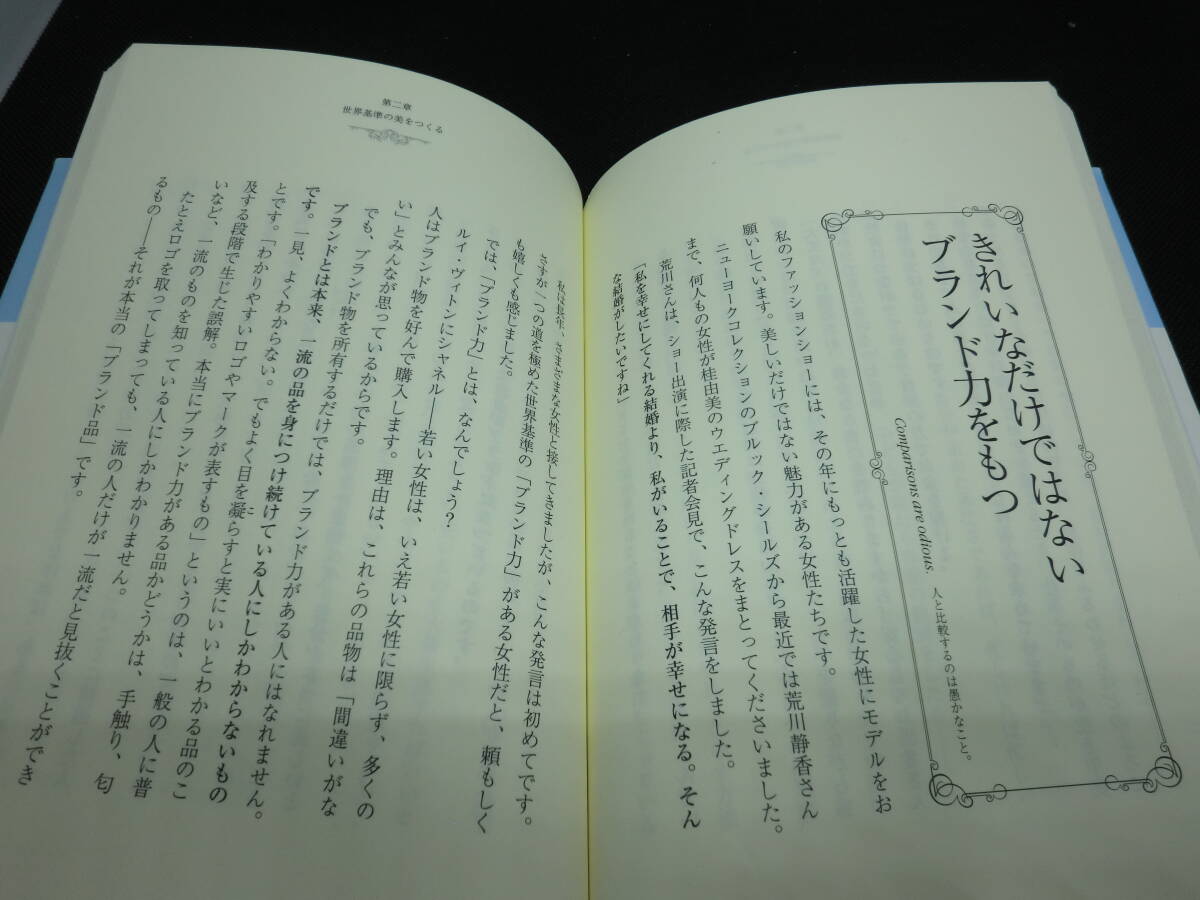 きれいなだけではない
ブランド力をもつ
Comparisons are odious.
人と比較するのは愚かなこと。
私のファッションショーには、その年にもっとも活躍した女性にモデルをお
願いしています。美しいだけではない魅力がある女性たちです。
ニューヨークコレクションのブルック・シールズから最近では荒川静香さん
まで、何人もの女性が桂由美のウエディングドレスをまとってくださいました。
荒川さんは、ショー出演に際した記者会見で、こんな発言をしました。
「私を幸せにしてくれる結婚より、私がいることで、相手が幸せになる。そん
な結婚がしたいですね」
第二章
世界基準の美をつくる
私は長年、さまざまな女性と接してきましたが、こんな発言は初めてです。
さすが一つの道を極めた世界基準の「ブランド力」がある女性だと、頼もしく
も嬉しくも感じました。
では、「ブランド力」とは、なんでしょう？
ルイ・ヴィトンにシャネル――若い女性は、いえ若い女性に限らず、多くの
人はブランド物を好んで購入します。理由は、これらの品物は「間違いがな
い」とみんなが思っているからです。
でも、ブランド物を所有するだけでは、ブランド力がある人にはなれません。
ブランドとは本来、一流の品を身につけ続けている人にしかわからないもの
です。一見、よくわからない。でもよく目を凝らすと実にいいとわかる品のこ
とです。「わかりやすいロゴやマークが表すもの」というのは、一般の人に普
及する段階で生じた誤解。本当にブランド力がある品かどうかは、手触り、匂
いなど、一流のものを知っている人にしかわかりません。
たとえロゴを取ってしまっても、一流の人だけが一流だと見抜くことができ
るもの――それが本当の「ブランド品」です。